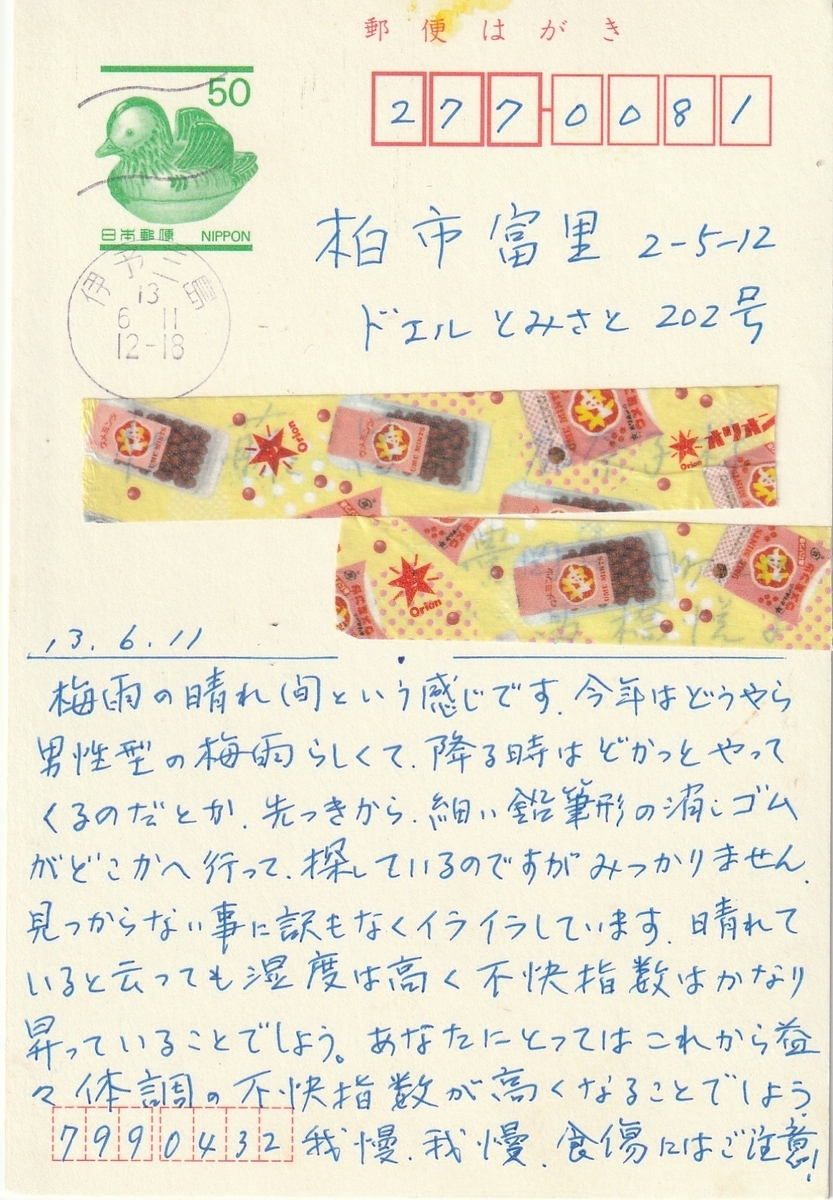 郵便はがき
50
日本郵便 NIPPON
277-0081
柏市富里 2-5-12
ドエルとみさと 202号
伊予三島
13
6 11
12-18
ウメミンツ
UME MINTS
Orion
UME MINTS
Orion
オリオン
UME MINTS
Orion
UME MINTS
ウメミンツ
13.6.11
梅雨の晴れ間という感じです. 今年はどうやら
男性型の梅雨らしくて. 降る時はどかっとやって
くるのだとか. 先っきから. 細い鉛筆形の消しゴム
がどこかへ行って. 探しているのですがみつかりません.
見つからない事に訳もなくイライラしています. 晴れて
いると云っても湿度は高く不快指数はかなり
昇っていることでしょう。あなたにとってはこれから益
々体調の不快指数が高くなることでしょう.
7990432 我慢. 我慢. 食傷にはご注意!